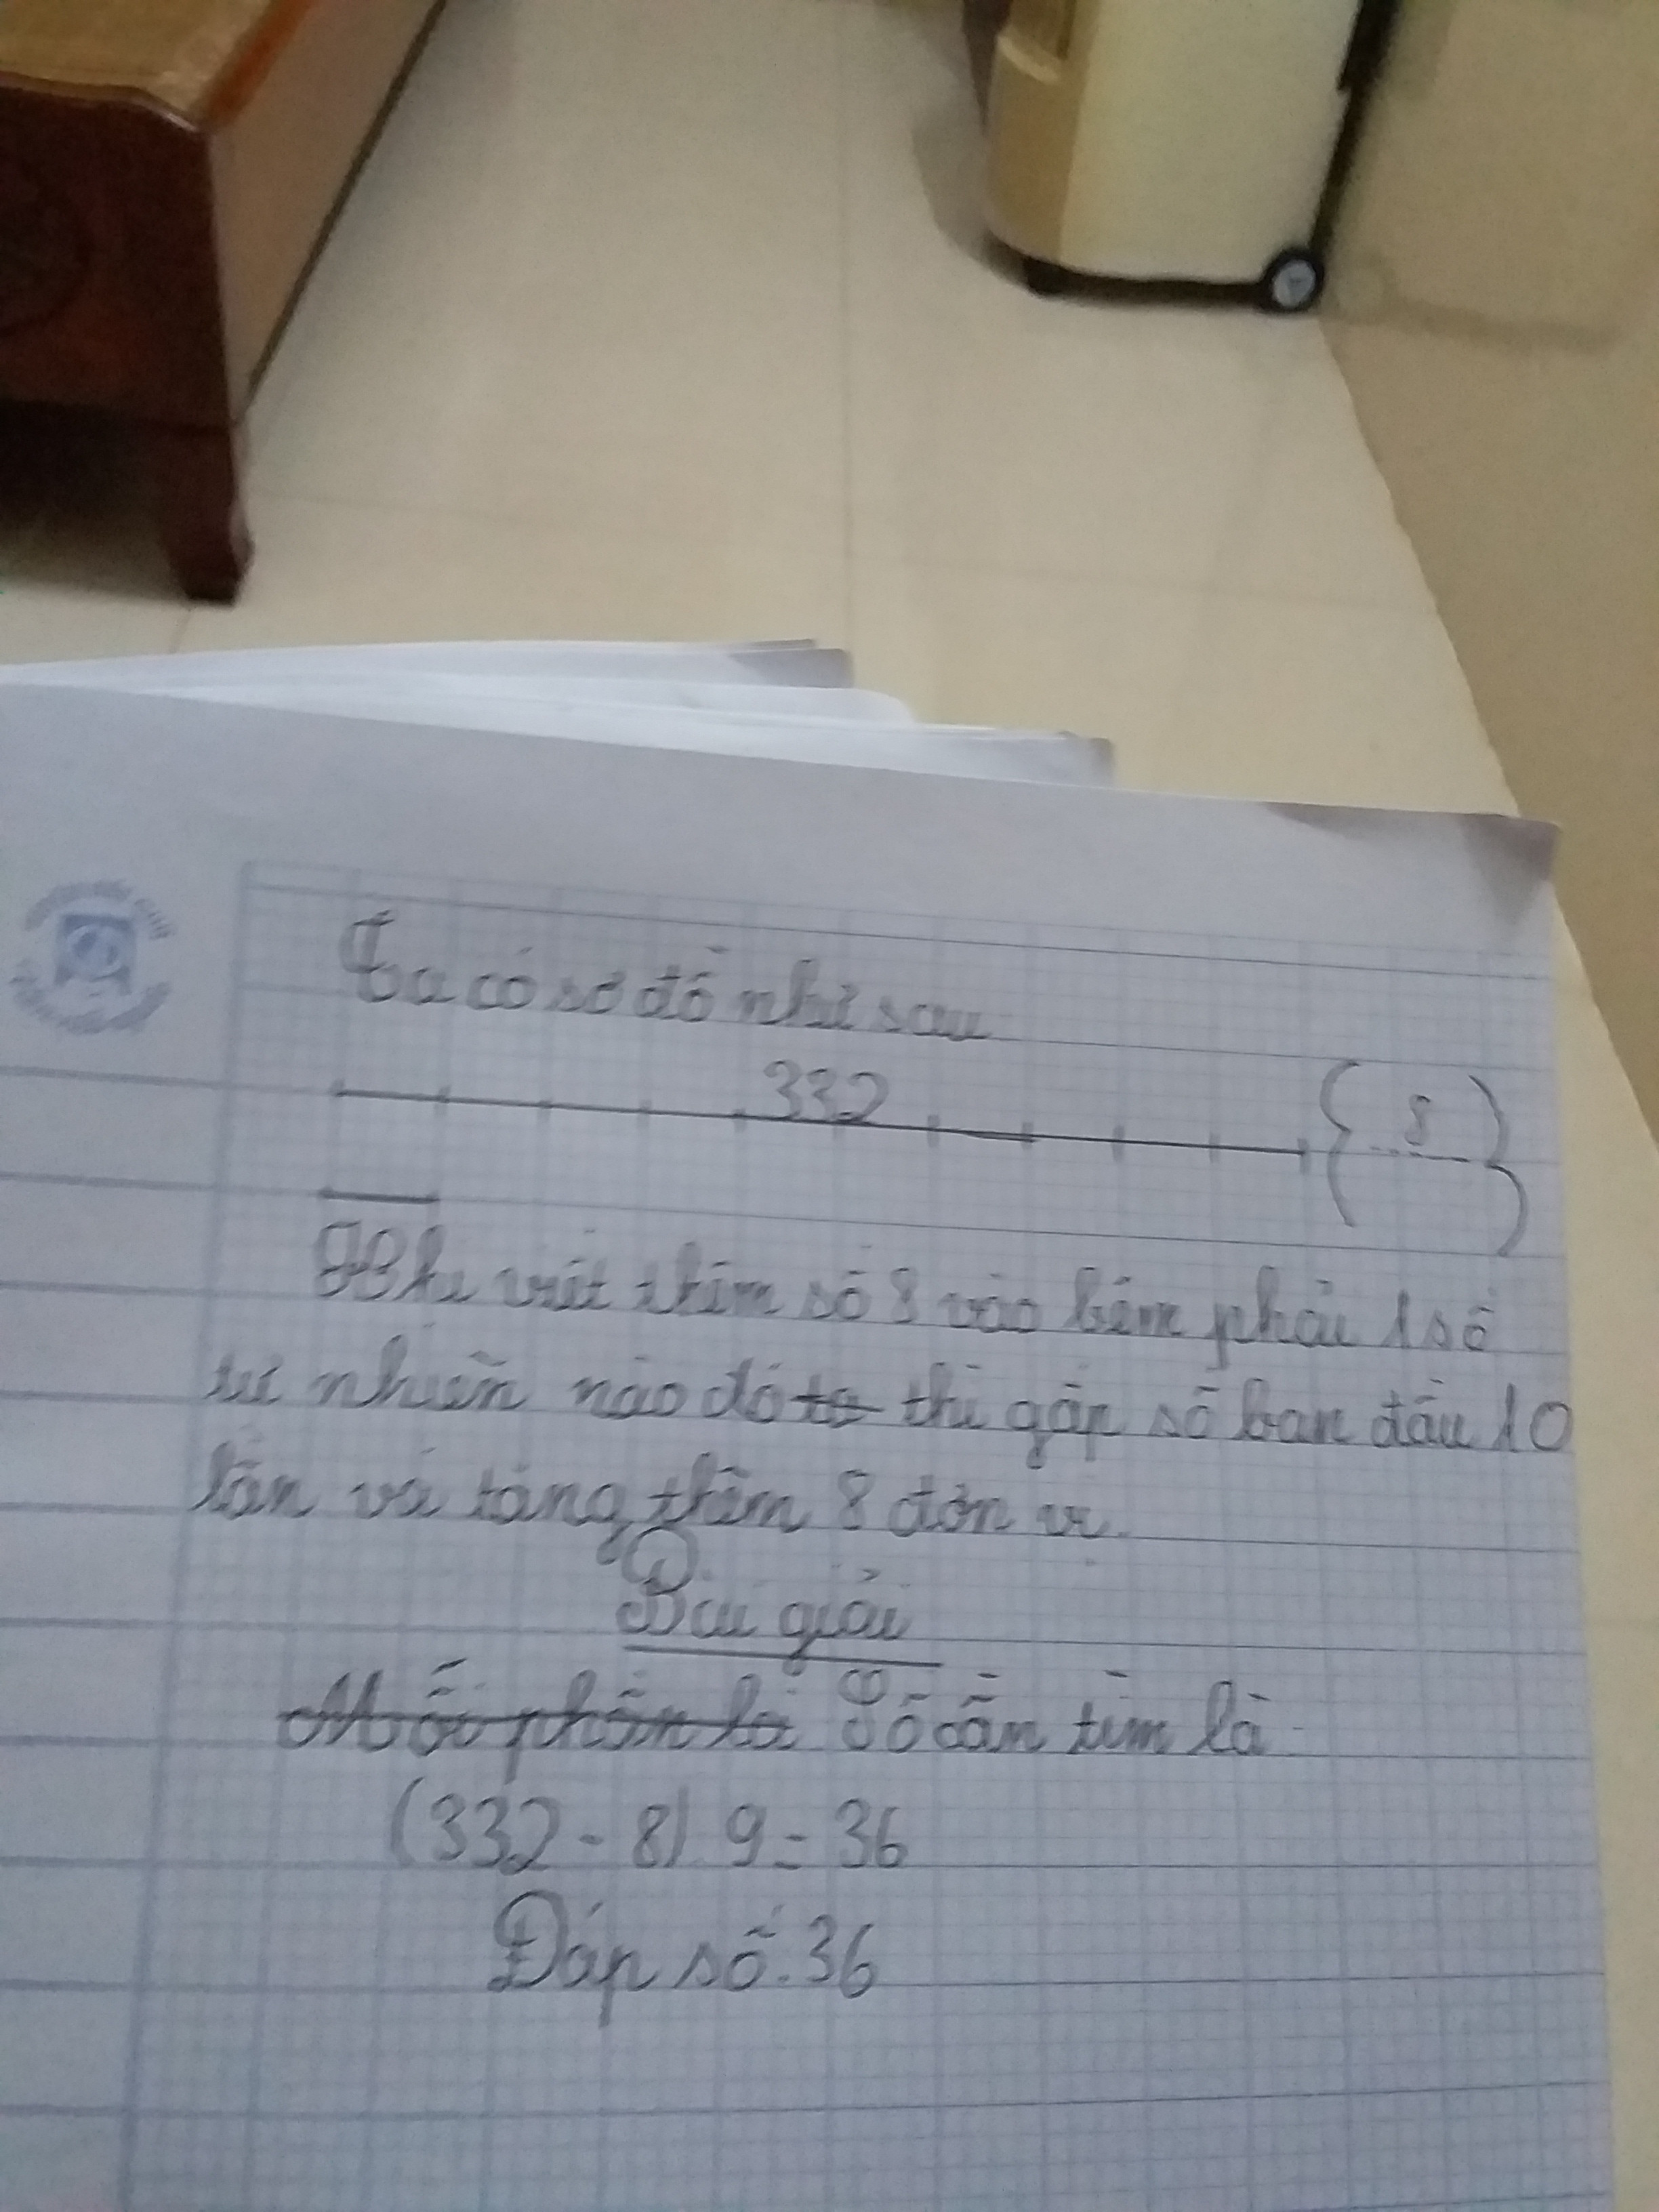 Ta có sơ đồ như sau
332
8
Khi viết thêm số 8 vào bên phải 1 số
tự nhiên nào đó thì gấp số ban đầu 10
lần và tăng thêm 8 đơn vị.
Bài giải
Mỗi phần là Số cần tìm là
(332 - 8) : 9 = 36
Đáp số: 36